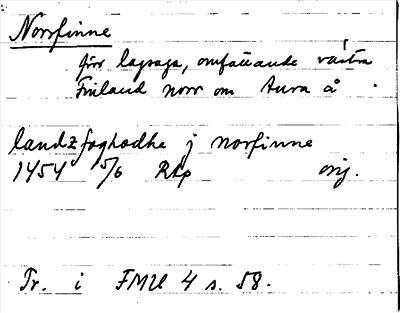 Norrfinne
förr lagsaga, omfattande västra
Finland norr om Aura å
landzfoghodhe j norfinne
1454 5/6 RAp orig.
Tr. i FMU 4 s. 58.